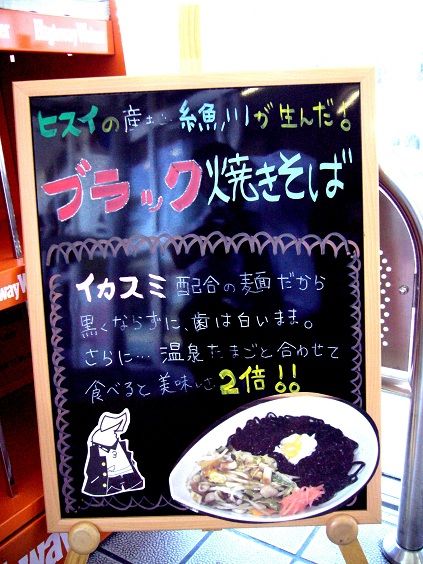 ヒスイの産地、糸魚川が生んだ!
ブラック焼きそば
イカスミ配合の麺だから
黒くならずに、歯は白いまま。
さらに…温泉たまごと合わせて
食べると美味しさ2倍!!
Highway Walker